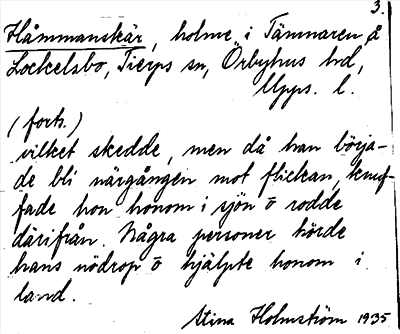 3.
Håmmanskär, holme i Tämnaren å
Lockelsbo, Tierps sn, Örbyhus hd,
Upps. l.
(forts.)
vilket skedde, men då han börja-
de bli närgången mot flickan, knuf-
fade hon honom i sjön o rodde
därifrån. Några personer hörde
hans nödrop o hjälpte honom i
land.
Stina Holmström 1935